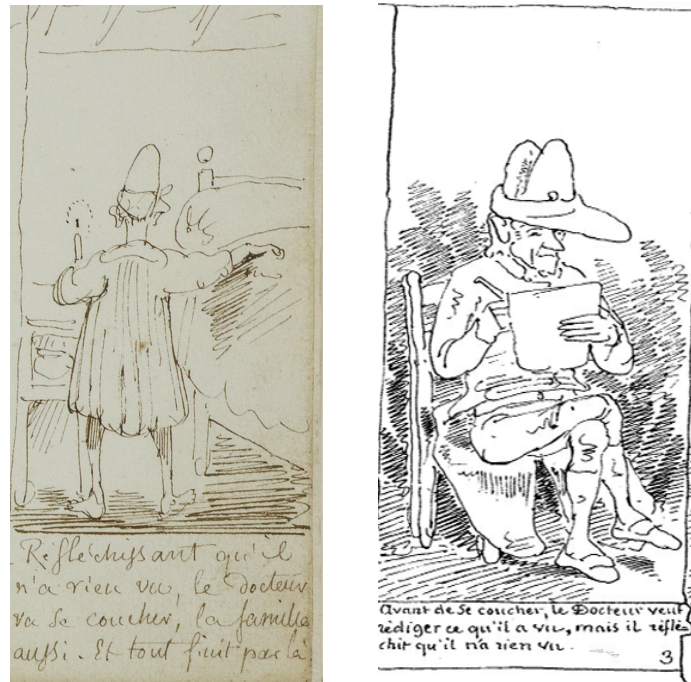 Réfléchissant qu'il
n'a rien vu, le Docteur
va se coucher, la famille
aussi. Et tout finit par là
Avant de se coucher, le Docteur veut
rédiger ce qu'il a vu, mais il réflé=
chit qu'il n'a rien vu.
3